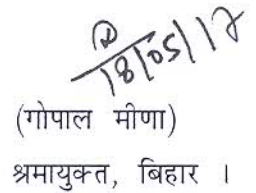 18/05/17
(गोपाल मीणा)
श्रमायुक्त, बिहार ।